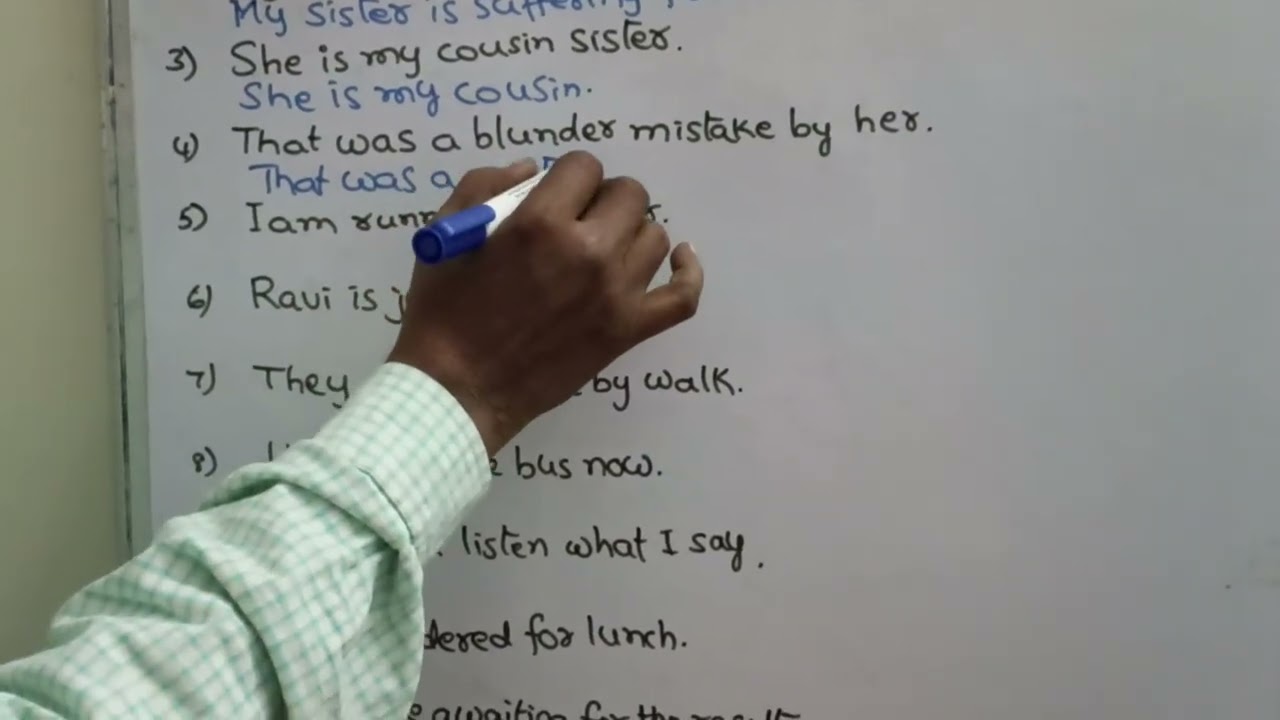 My sister is suffering
3) She is my cousin sister.
She is my cousin.
4) That was a blunder mistake by her.
That was a
5) I am
6) Ravi is
7) They by walk.
8) bus now.
listen what I say.
for lunch.
awaiting for the result